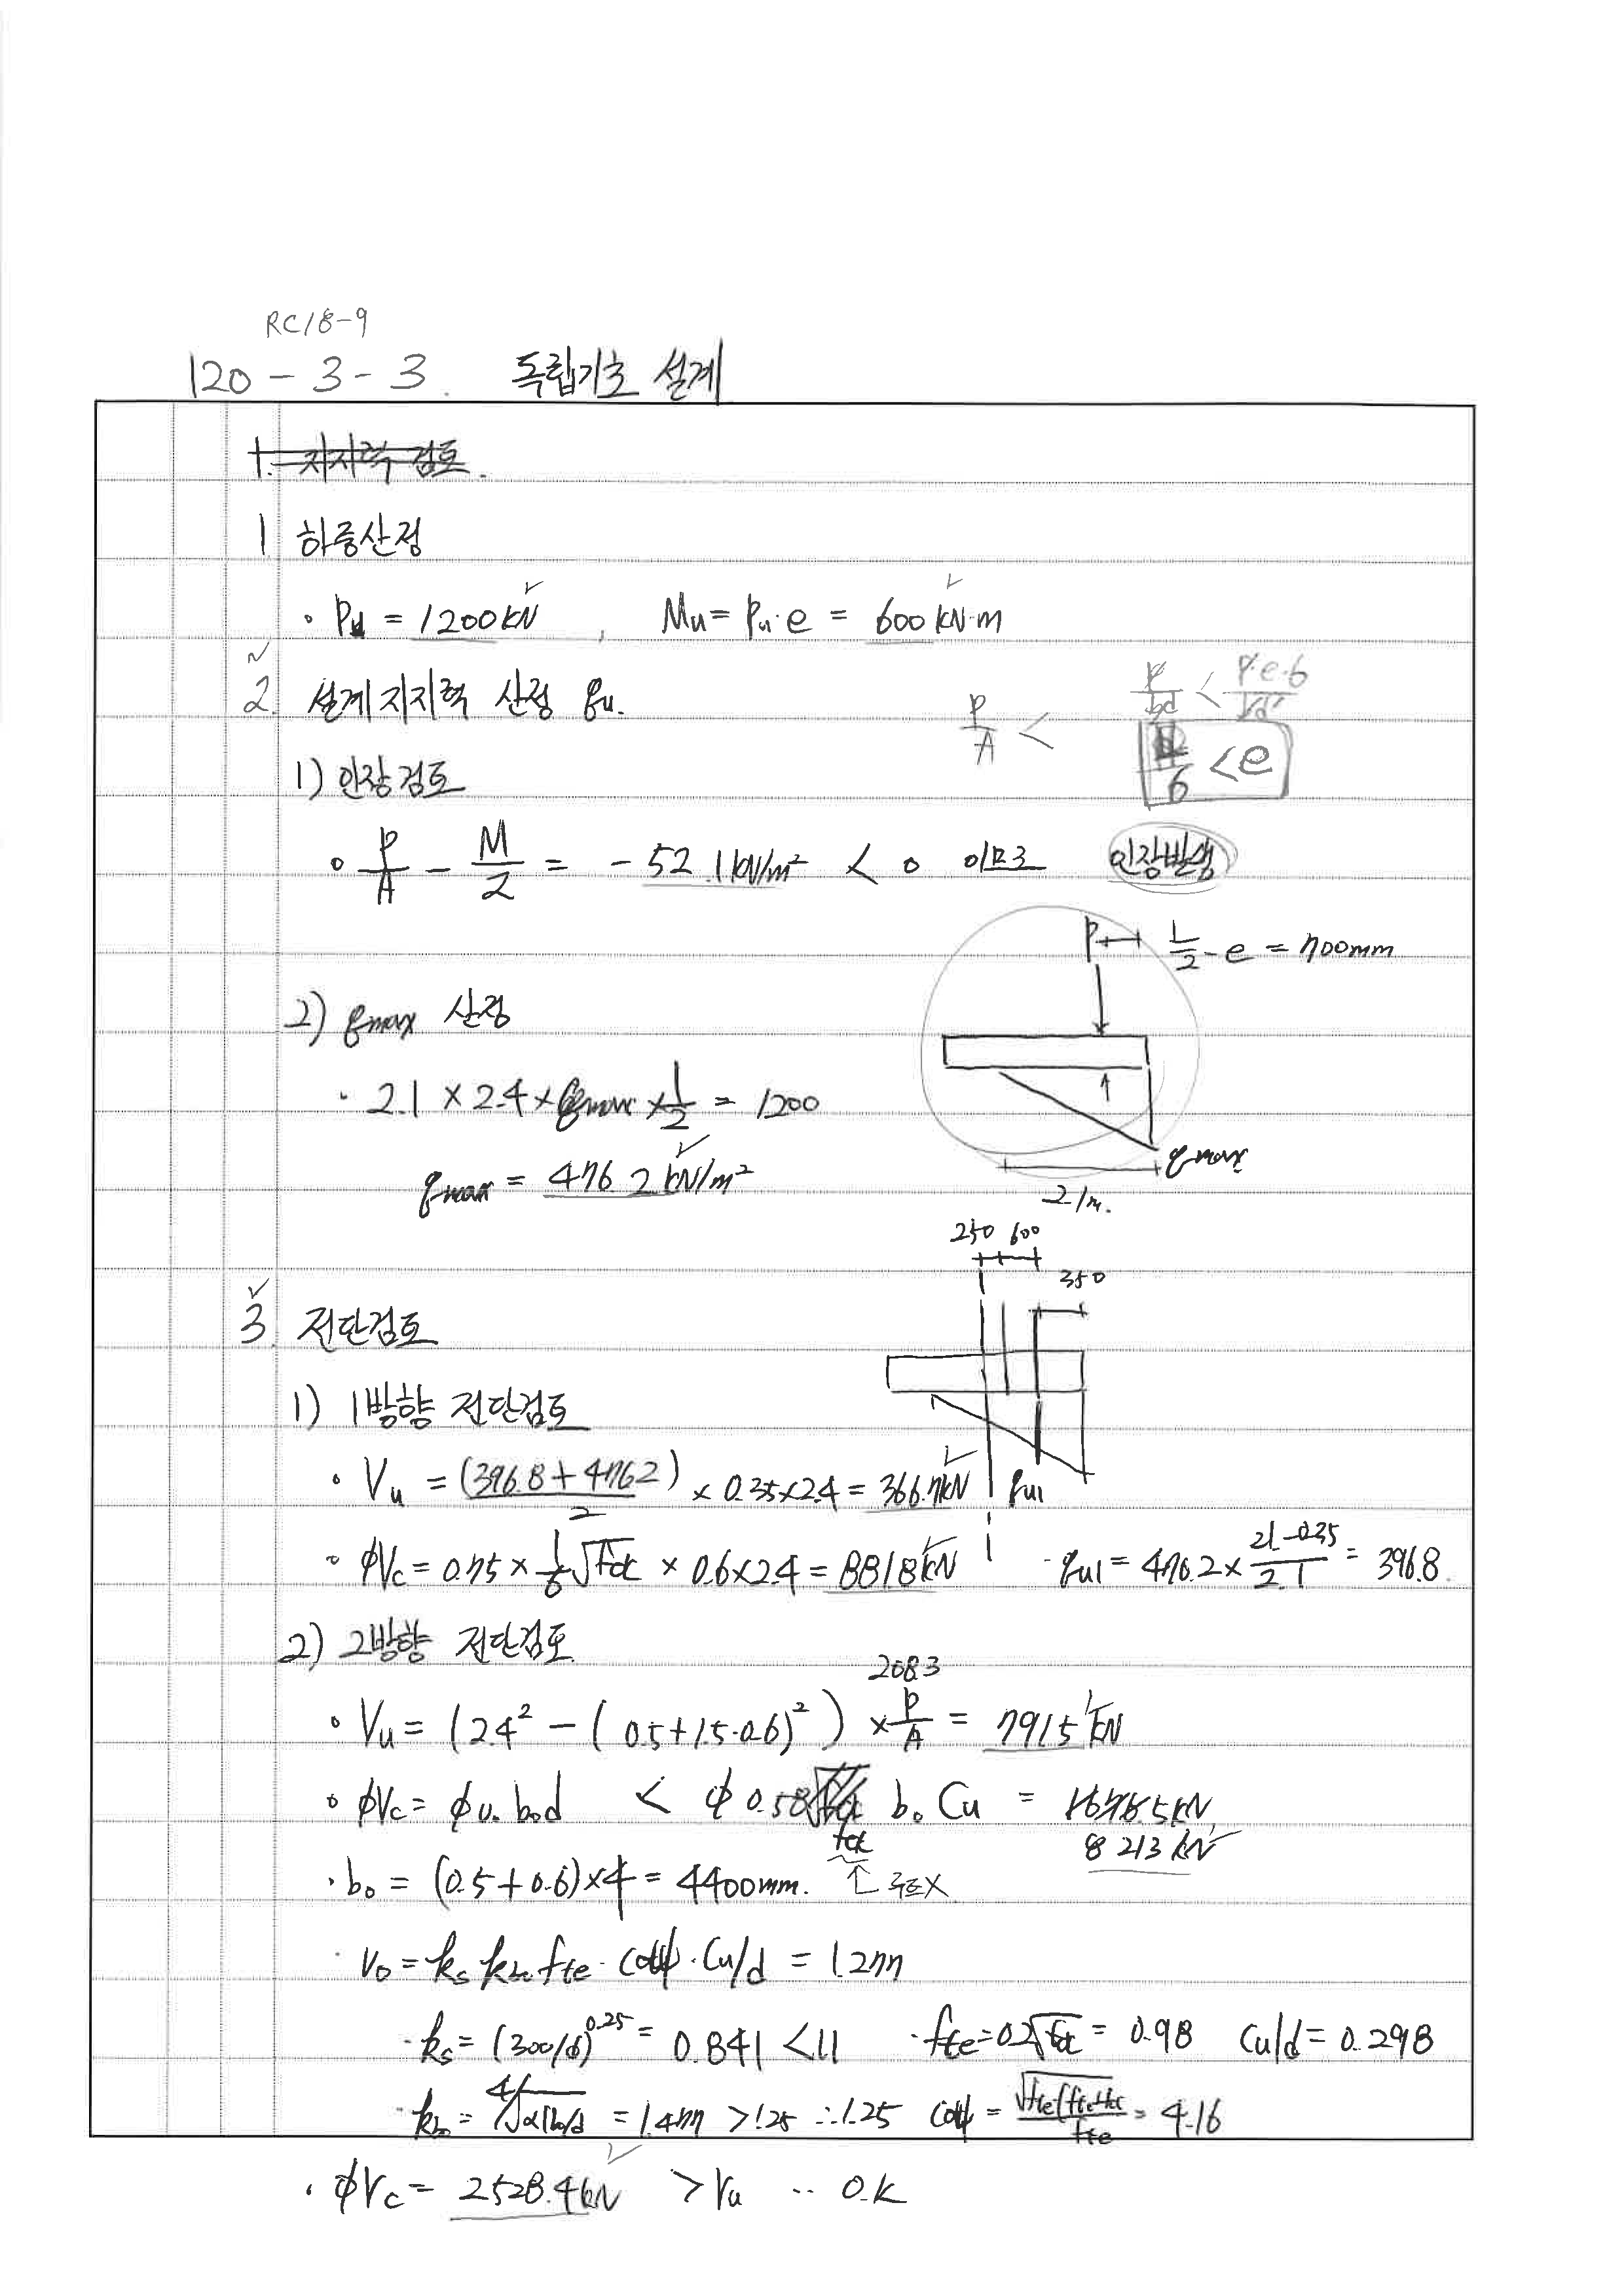 RC18-9
120-3-3. 독립기초 설계
1. 지지력 검토.
1. 하중산정
· Pu = 1200kN, Mu = Pu·e = 600kN·m
2. 설계지지력 산정 qu.
P/A < P/bd < P·e·6/bd²
/6 < e
1) 인장검토
· P/A - M/Z = -52.1kN/m² < 0 이므로 인장발생
P L/2 - e = 700mm
2) qmax 산정
· 2.1 × 2.4 × qmax × 1/2 = 1200
qmax = 476.2kN/m²
qmax
2.1m.
250 600
350
3. 전단검토
1) 1방향 전단검토
· Vu = (396.8+476.2)/2 × 0.35×2.4 = 366.7kN qu1
· φVc = 0.75 × 1/6 √fck × 0.6×2.4 = 881.8kN · qu1 = 476.2 × (2.1-0.35)/2.1 = 396.8
2) 2방향 전단검토.
208.3
· Vu = (2.4² - (0.5+1.5·0.6)²) × P/A = 791.5kN
· φVc = φv0 b0d < φ 0.58 fck b0 Cu = 1676.5kN
8213kN
· b0 = (0.5+0.6)×4 = 4400mm. ↑ 루트X
· v0 = ks kb0 fte · cotψ · Cu/d = 1.277
· ks = (300/d)^0.25 = 0.841 < 1.1 · fte = 0.2√fck = 0.98 Cu/d = 0.298
· kb0 = 4/√α(b0/d) = 1.477 > 1.25 ∴ 1.25 cotψ = √fte(fte+fck)/fte = 4.16
· φVc = 2528.4kN > Vu ∴ O.K